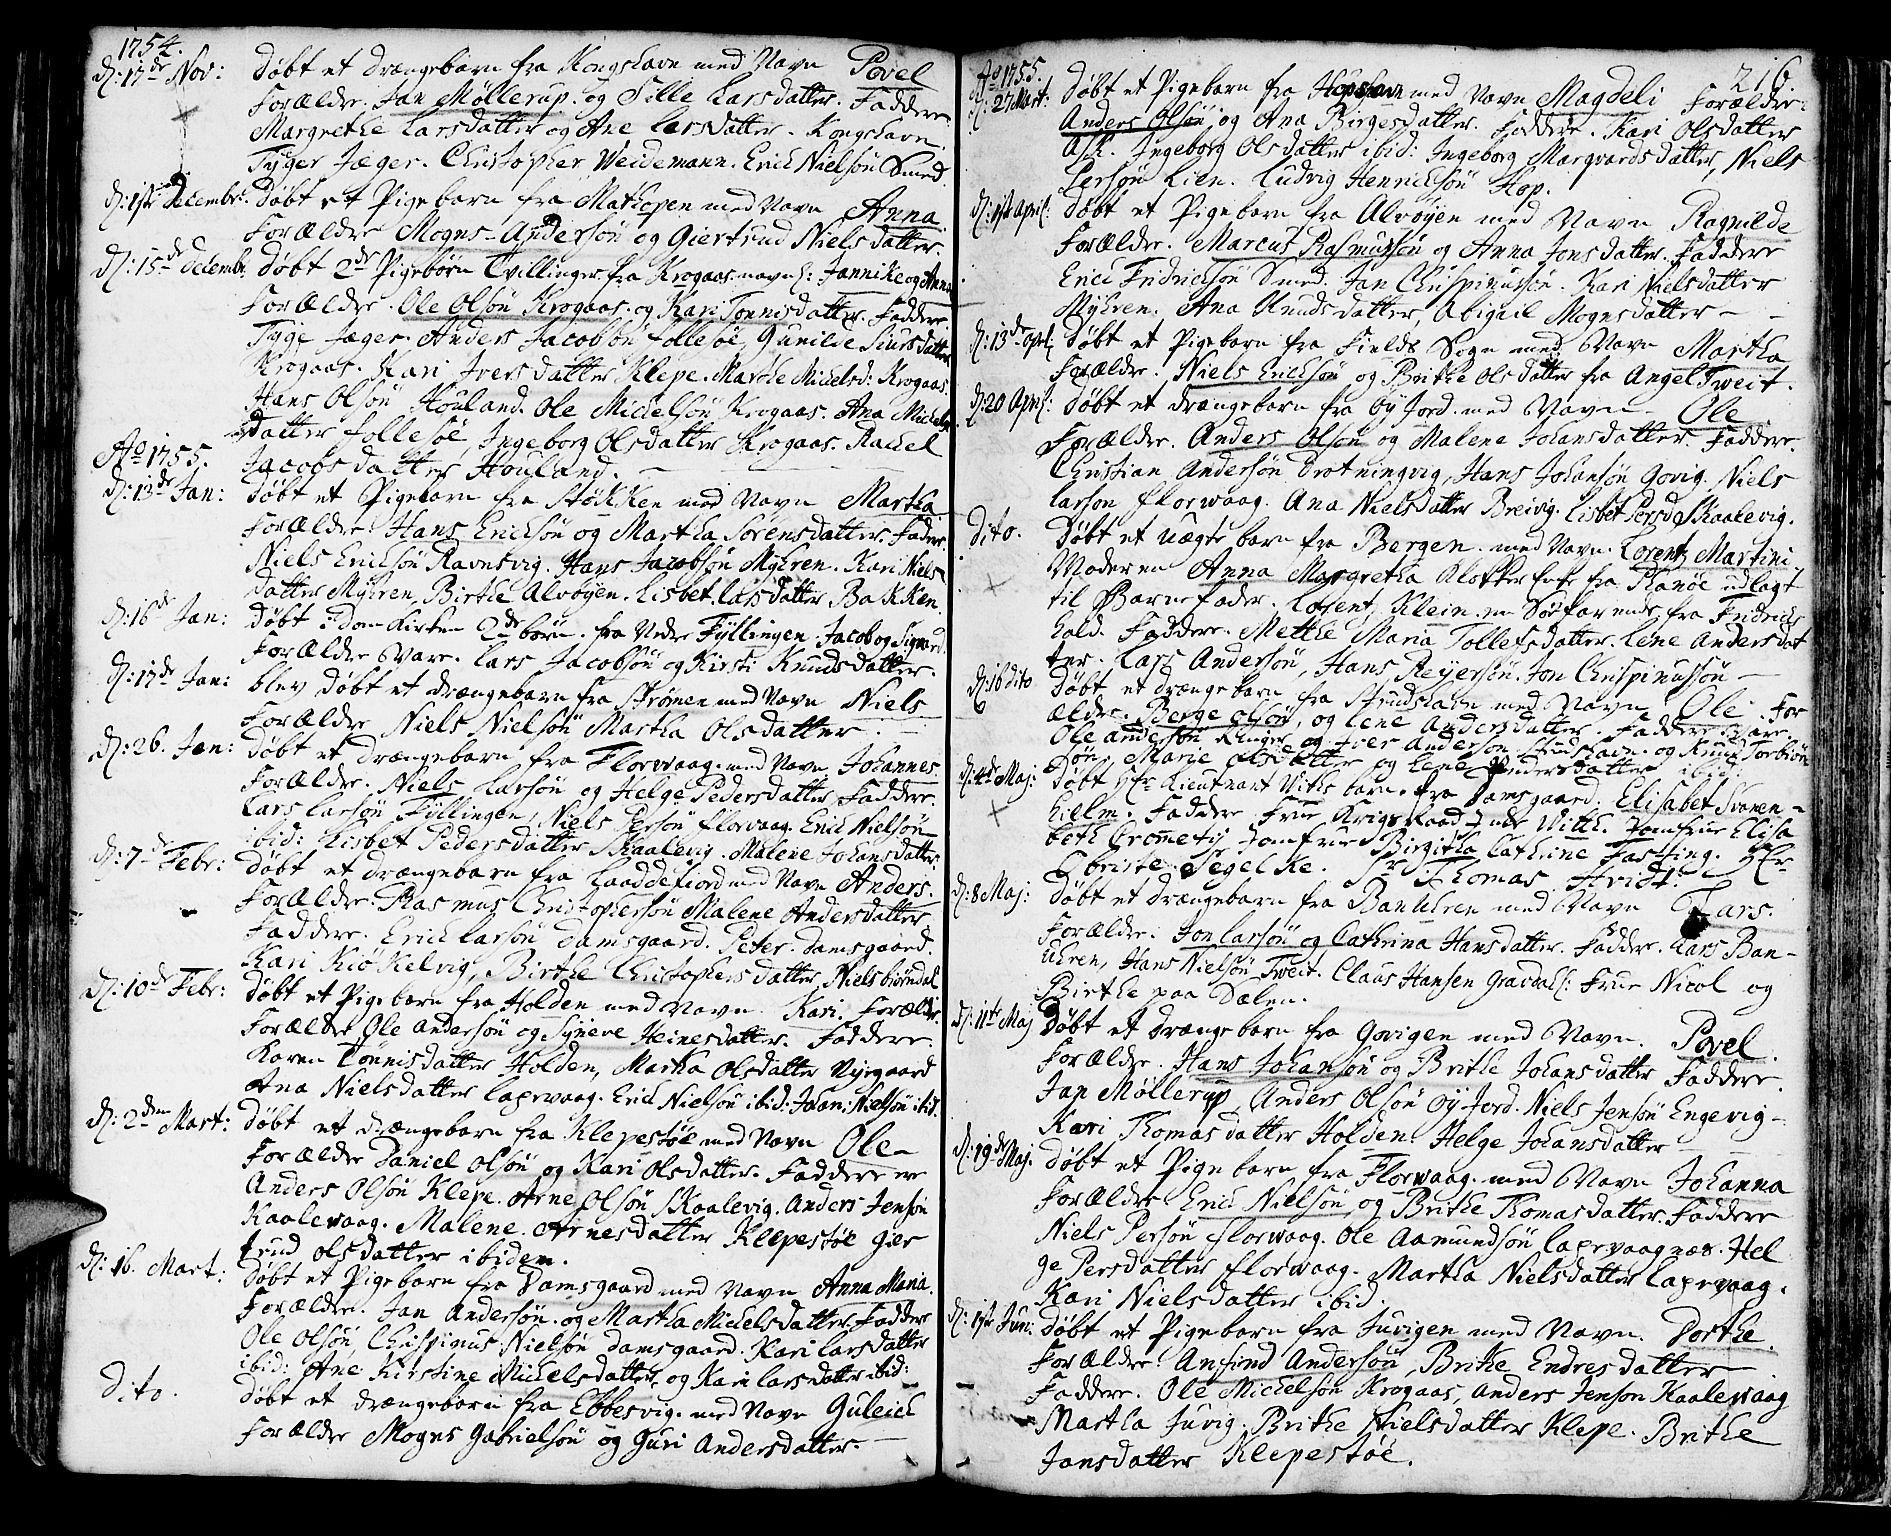 1754.
d: 17de Nov: døbt et drængebarn fra Kongshavn med Navn Povel
Forældre. Jan Møllerup. og Sille Larsdatter. Faddere.
Margrethe Larsdatter og Ane Larsdatter. Kongshavn.
Tyger Jæger. Christopher Weidemann. Erich Nielsøn Smed.
d: 1ste Decembr: døbt et Pigebarn fra Mathopen med Navn Anna
Forældre Mogns Andersøn og Giertrud Nielsdatter.
d: 15de Decembr. døbt 2de Pigebørn Tvillinger fra Krogaas navnl: Jannike og Anna
Forældre. Ole Olsøn Krogaas. og Kari Tonnisdatter. Faddere.
Tyge Jæger. Anders Jacobsøn follesøe, Gunilde Siursdatter
Krogaas. Kari Iversdatter Klepe. Marthe Michelsd: Krogaas.
Hans Olsøn Houland. Ole Michelsøn Krogaas. Ana Michels
datter follesøe, Ingeborg Olsdatter Krogaas. Rachel
Ao 1755. Jacobsdatter Houland.
d: 13de Jan: døbt et Pigebarn fra Støkken med Navn Martha
Forældre Hans Erichsøn og Martha Sørensdatter. Fadder.
Niels Erichsøn Ravnsvig. Hans Jacobsøn Myhren. Kari Niels
datter Myhren, Birthe Alvøyen. Lisbet Larsdatter Bakken.
d: 16de Jan: døbt i DomKirken 2de børn. fra Nedre Fyllingen. Jacob og Sigvard.
Forældre Vare. Lars Jacobsøn og Kirsti Knudsdatter.
d: 17de Jan: blev døbt et drængebarn fra Strømen med Navn Niels
Forældre Niels Nielsøn Martha Olsdatter.
d: 26. Jan: døbt et drængebarn fra Florvaag. med Navn Johannes.
Forældre. Niels Larsøn og Helge Pedersdatter, Faddere.
Lars Larsøn Fyllingen, Niels Persøn florvaag. Erich Nielsøn
ibid: Lisbet Pedersdatter Skaalevig. Malene Johansdatter.
d: 7de Febr: døbt et drængebarn fra Laaddefiord med Navn Anders.
Forældre. Rasmus Christophersøn Malene Andersdatter.
Faddere. Erich Larsøn Damsgaard. Peter. Damsgaard.
Kari Kiøkelvig, Birthe Christophersdatter, Niels biørndal
d: 10de Febr: døbt et Pigebarn fra Holden med Navn. Kari. Forældr.
Forældre Ole Andersøn og Syneve Heinesdatter. Faddere.
Karen Tønnisdatter Holden, Martha Olsdatter Nyegaard
Ana Nielsdatter Lapevaag. Erich Nielsøn ibid: Joan: Nielsøn ibid.
d: 2den Mart: døbt et drængebarn fra Klepestøe med Navn Ole
Forældre Daniel Olsøn og Kari Olsdatter. Faddere er
Anders Olsøn Klepe. Arne Olsøn Skaalevig. Anders Jensøn
Kaalevaag. Malene Arnesdatter Klepestøe Gier
trud Olsdatter ibidem.
d: 16. Mart: døbt et Pigebarn fra Damsgaard med Navn Anna Maria.
Forældre. Jan Andersøn. og Martha Michelsdatter. Fadder
Ole Olsøn, Chrispinus Nielsøn Damsgaard. Kari Larsdatter
ibid: Ane Kirstine Michelsdatter, og Kari Larsdatter ibid:
Dito. døbt et drængebarn fra Ebbesvig. med Navn Guleich
Forældre Mogns Gabrielsøn og Guri Andersdatter.
216.
Ao 1755.
d: 27 Mart: døbt et Pigebarn fra Hopshavn med Navn Magdeli Forældre:
Anders Olsøn og Ana Birgesdatter. Faddere. Kari Olsdatter
Ask. Ingeborg Olsdatter ibid: Ingeborg Margvardsdatter, Niels
Persøn Lien. Ludvig Henrichsøn Hop.
d: 1ste April: døbt et Pigebarn fra Alvøyen med Navn Ragnilde
Forældre. Marcus Rasmusøn og Anna Jonsdatter. Faddere
Erich Fridrichsøn Smed. Jan Chrispinussøn. Kari Nielsdatter
Myhren. Ana Knudsdatter, Abigail Mognsdatter
d: 13de Apri: døbt et Pigebarn fra Fields Sogn med Navn Martha
Forældre. Niels Erichsøn og Brithe Olsdatter fra Angeltweit.
d: 20 April: døbt et drængebarn fra Øyjord med Navn Ole
Forældre. Anders Olsøn og Malene Johansdatter. Faddere.
Christian Andersøn Drotningvig, Hans Johansøn Govig. Niels
Larsøn florwaag. Ana Nielsdatter Breivig. Lisbet Persd. Skaalevig.
Dito. døbt et uægte barn fra Bergen. med Navn. Lorentz Martini
Moderen Anna Margretha fra Ranøe udlagt
til Barnefader. Lorentz Klein. en Søefarende fra Fridrichs
hald. Faddere. Metthe Maria Tollefsdatter. Lene Andersdat
ter. Lars Andersøn, Hans Reyersøn. Jon Chrispinussøn
d: 16 dito døbt et drængebarn fra Strudshavn med Navn Ole. For
ældre. Berge Olsøn, og Lene Andersdatter. Faddere vare.
Ole Andersøn og Iver Andersøn Strudshavn. og Knud Torbiørn
søn, Marie Olsdatter og Lene Andersdatter ibid:
d: 4de Maj: døbt Hr Lieutnant Withs barn. fra Damsgaard. Elisabet Svanen-
hielm. Faddere Frue Krigsraad With. Jomfrue Elisa
beth Crometij Jomfrue Birgitha Cathrine Fasting. Hr
Christe Segelke. Sr Thomas
d: 8 Maj: døbt et drængebarn fra Banuhren med Navn Lars.
Forældre. Jon Larsøn og Cathrina Hansdatter. Fadder. Lars Ban-
uhren, Hans Nielsøn Tweit. Claus Hansen Gravdahl: Frue Nicol og
Birthe paa Dalen.
d: 11te Maj døbt et drængebarn fra Govigen med Navn. Povel.
Forældre. Hans Johansøn og Brithe Johansdatter Faddere.
Jan Møllerup, Anders Olsøn Øyjord. Niels Jensøn Engevig-
Kari Thomasdatter Holden. Helge Johansdatter
d: 19de Maj. døbt et Pigebarn fra Florwaag. med Navn Johanna
Forældre Erich Nielsøn, og Brithe Thomasdatter. Faddere
Niels Persøn florwaag. Ole Aamundsøn Lapevaagnæs. Hel
ge Persdatter florwaag. Martha Nielsdatter Lapevaag.
Kari Nielsdatter ibid.
d: 1ste Juni: døbt et Pigebarn fra Juvigen med Navn. Dorthe.
Forældre. Ansfind Andersøn, Brithe Endresdatter
Faddere. Ole Michelsøn Krogaas, Anders Jensøn Kaalevaag
Martha Juvig. Brithe Nielsdatter Klepe. Brithe
Jansdatter Klepestøe.